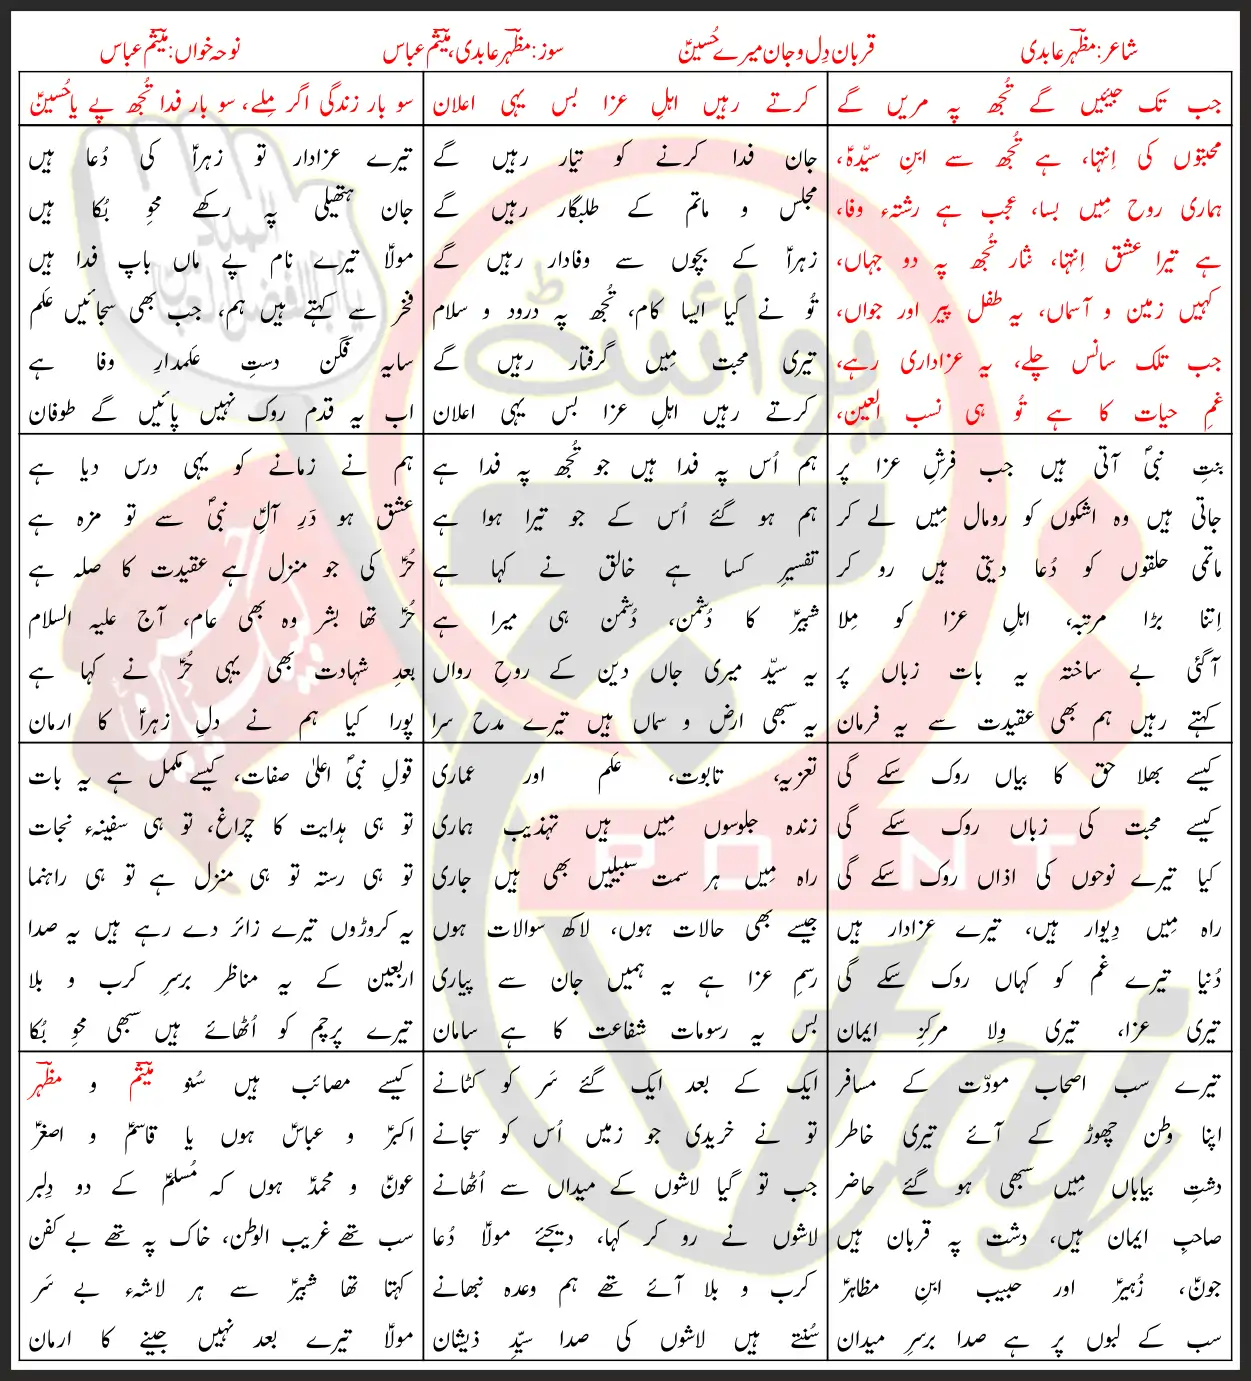 شاعر: مظہر عابدی
قربان دِل و جان میرے حُسینؑ
سوز: مظہر عابدی، میثم عباس
نوحہ خواں: میثم عباس
جب تک جیئیں گے تُجھ پہ مریں گے
کرتے رہیں اہلِ عزا بس یہی اعلان
سو بار زندگی اگر مِلے، سو بار فدا تُجھ پے یا حُسینؑ
محبتوں کی اِنتہا، ہے تُجھ سے ابنِ سیّدہؑ،
ہماری روح مِیں بسا، عجب ہے رشتہء وفا،
ہے تیرا عشق اِنتہا، نثار تُجھ پہ دو جہاں،
کہیں زمین و آسماں، یہ طفل پیر اور جواں،
جب تلک سانس چلے، یہ عزاداری رہے،
غمِ حیات کا ہے تُو ہی نسب العین،
جان فدا کرنے کو تیار رہیں گے
مجلس و ماتم کے طلبگار رہیں گے
زہراؑ کے بچوں سے وفادار رہیں گے
تُو نے کیا ایسا کام، تُجھ پہ درود و سلام
تیری محبت مِیں گرفتار رہیں گے
کرتے رہیں اہلِ عزا بس یہی اعلان
تیرے عزادار تو زہراؑ کی دُعا ہیں
جان ہتھیلی پہ رکھے محوِ بُکا ہیں
مولاؑ تیرے نام پے ماں باپ فدا ہیں
فخر سے کہتے ہیں ہم، جب بھی سجائیں عَلم
سایہ فگن دستِ عَلمدارِ وفا ہے
اب یہ قدم روک نہیں پائیں گے طوفان
بنتِ نبیؐ آتی ہیں جب فرشِ عزا پر
جاتی ہیں وہ اشکوں کو رومال مِیں لے کر
ماتمی حلقوں کو دُعا دیتی ہیں رو کر
اِتنا بڑا مرتبہ، اہلِ عزا کو مِلا
آ گئی بے ساختہ یہ بات زباں پر
کہتے رہیں ہم بھی عقیدت سے یہ فرمان
ہم اُس پہ فدا ہیں جو تُجھ پہ فدا ہے
ہم ہو گئے اُس کے جو تیرا ہوا ہے
تفسیرِ کسا ہے خالق نے کہا ہے
شبیرؑ کا دُشمن، دُشمن ہی میرا ہے
یہ سیّد میری جاں دین کے روحِ رواں
یہ سبھی ارض و سماں ہیں تیرے مدح سرا
ہم نے زمانے کو یہی درس دیا ہے
عشق ہو دَرِ آلِؑ نبیؐ سے تو مزہ ہے
حُرؑ کی جو منزل ہے عقیدت کا صلہ ہے
حُرؑ تھا بشر وہ بھی عام، آج علیہ السلام
بعدِ شہادت بھی یہی حُرؑ نے کہا ہے
پورا کیا ہم نے دلِ زہراؑ کا ارمان
کیسے بھلا حق کا بیاں روک سکے گی
کیسے محبت کی زباں روک سکے گی
کیا تیرے نوحوں کی اذاں روک سکے گی
راہ مِیں دِیوار ہیں، تیرے عزادار ہیں
دُنیا تیرے غم کو کہاں روک سکے گی
تیری عزا، تیری وِلا مرکزِ ایمان
تعزیہ، تابوت، عَلم اور عماری
زندہ جلوسوں مِیں ہیں تہذیب ہماری
راہ مِیں ہر سمت سبیلیں بھی ہیں جاری
جیسے بھی حالات ہوں، لاکھ سوالات ہوں
رسمِ عزا ہے یہ ہمیں جان سے پیاری
بس یہ رسومات شفاعت کا ہے سامان
قولِ نبیؐ اعلیٰ صفات، کیسے مکمل ہے یہ بات
تو ہی ہدایت کا چراغ، تو ہی سفینہء نجات
تو ہی رستہ تو ہی منزل ہے تو ہی راہنما
یہ کروڑوں تیرے زائر دے رہے ہیں یہ صدا
اربعین کے یہ مناظر برسرِ کرب و بلا
تیرے پرچم کو اُٹھائے ہیں سبھی محوِ بُکا
تیرے سب اصحاب مودّت کے مسافر
اپنا وطن چھوڑ کے آئے تیری خاطر
دشتِ بیاباں مِیں سبھی ہو گئے حاضر
صاحبِ ایمان ہیں، دشت پہ قربان ہیں
جونؑ، زُہیرؑ اور حبیب ابنِ مظاہرؑ
سب کے لبوں پر ہے صدا برسرِ میدان
ایک کے بعد ایک گئے سَر کو کٹانے
تو نے خریدی جو زمیں اُس کو سجانے
جب تو گیا لاشوں کے میداں سے اُٹھانے
لاشوں نے رو کر کہا، دیجئے مولاؑ دُعا
کرب و بلا آئے تھے ہم وعدہ نبھانے
سُنتے ہیں لاشوں کی صدا سیّدِ ذیشان
کیسے مصائب ہیں سُنو میثم و مظہر
اکبرؑ و عباسؑ ہوں یا قاسمؑ و اصغرؑ
عونؑ و محمدؑ ہوں کہ مُسلمؑ کے دو دِلبر
سب تھے غریب الوطن، خاک پہ تھے بے کفن
کہتا تھا شبیرؑ سے ہر لاشہء بے سَر
مولاؑ تیرے بعد نہیں جینے کا ارمان
پوائنٹ
POINT
taj